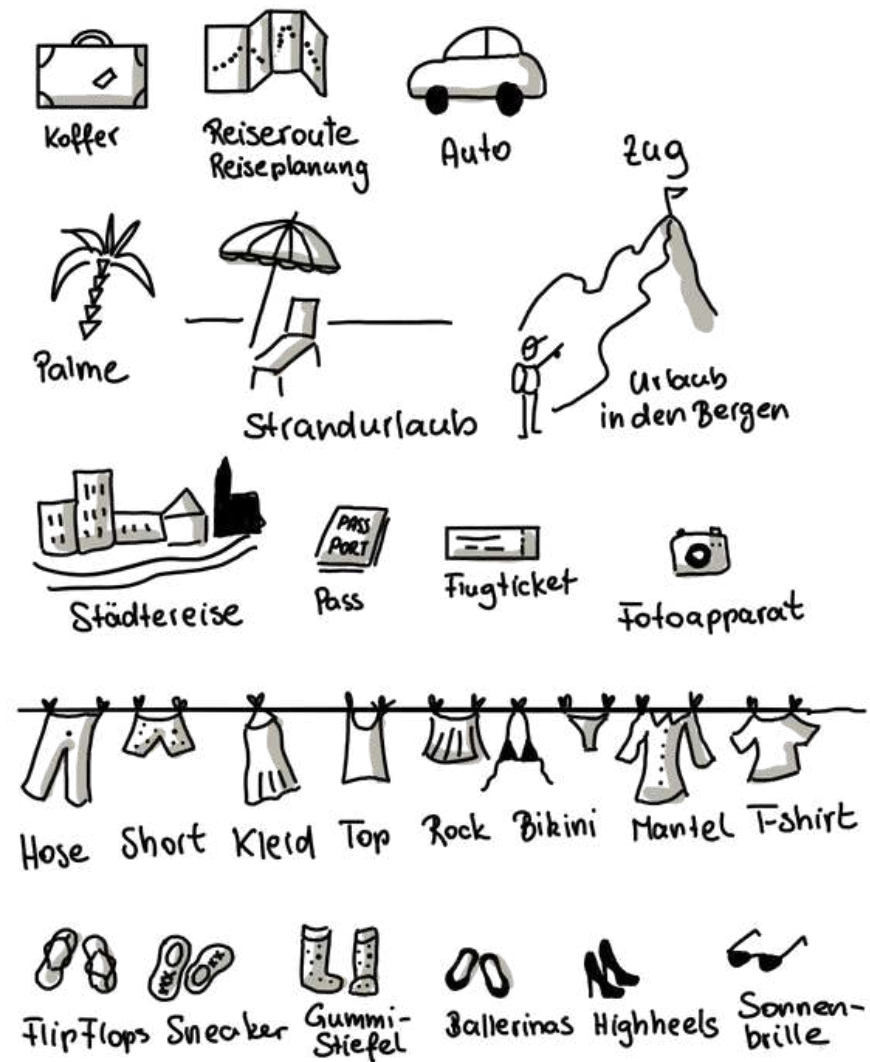 Koffer
Reiseroute
Reiseplanung
Auto
Zug
Palme
Strandurlaub
Urlaub
in den Bergen
Städtereise
PASS
PORT
Pass
Flugticket
Fotoapparat
Hose
Short
Kleid
Top
Rock
Bikini
Mantel
T-Shirt
FlipFlops
Sneaker
Gummi-
Stiefel
Ballerinas
Highheels
Sonnen-
brille